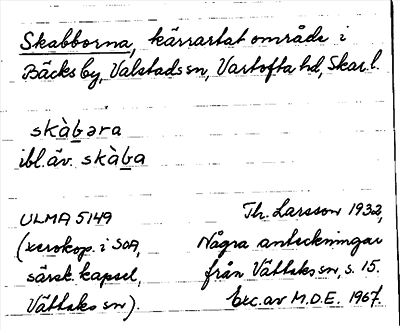 Skabborna, kärrartat område i
Bäcks by, Valstads sn, Vartofta hd, Skar.l.
skàbəra
ibl. äv. skàba
ULMA 5149
(xerokop. i SOA,
särsk. kapsel,
Vättaks sn)
Th. Larsson 1932,
Några anteckningar
från Vättaks sn, s. 15.
Exc. av M.D.E. 1967.